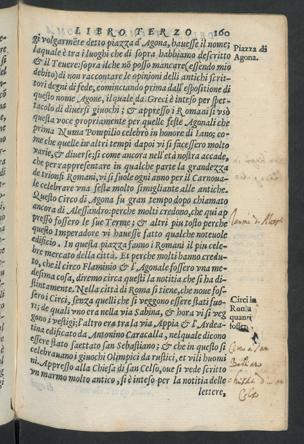 LIBRO TERZO 160
gi volgarmẽte detto piazza d'Agona, hauesse il nome;
laquale è tra i luoghi che di sopra habbiamo descritto
& il Teuere: sopra ilche nõ posso mancare (essendo mio
debito) di non raccontare le opinioni delli antichi scrit
tori degni di fede, cominciando prima dall'espositione di
questo nome Agone, il quale da Greci è inteso per spet-
tacolo di diuersi giuochi; & appresso i Romani si usò
questa voce propriamente per quelle feste Agonali che
prima Numa Pompilio celebrò in honore di Iano; co-
me che quelle in altri tempi dapoi vi si facessero molto
varie, & diuerse; si come ancora nell'età nostra accade,
che per rappresentare in qualche parte la grandezza
de trionfi Romani, vi si suole ogni anno per il Carnoua-
le celebrare vna festa molto simigliante alle antiche.
Questo Circo di Agona fu gran tempo dopo chiamato
ancora di Alessandro: perche molti credono, che qui ap
presso fossero le sue Terme; & altri piu tosto perche
questo Imperadore vi hauesse fatto qualche noteuole
edificio. In questa piazza fanno i Romani il piu cele-
bre mercato della città. Et perche molti hanno credu-
to, che il circo Flaminio & l'Agonale fossero vna me-
desima cosa, diremo circa questi la notitia che si ha di-
stintamente. Nella città di Roma si tiene, che noue fos-
sero i Circi, senza quelli che si veggono essere stati fuo-
ri, de quali vno era nella via Sabina, & hora vi si veg
gono i vestigi; l'altro era tra la via Appia & l'Ardea-
tina edificato da Antonino Caracalla, nel quale dicono
essere stato saettato san Sebastiano; & che in questo si
celebrauano i giuochi Olimpici da rustici, et vili huomi
ni. Appresso alla Chiesa di san Celso, oue si vede scritto
vn marmo molto antico, si è inteso per la notitia delle
lettere,
Piazza di
Agona.
Circi in
Roma
quanti
fossero.